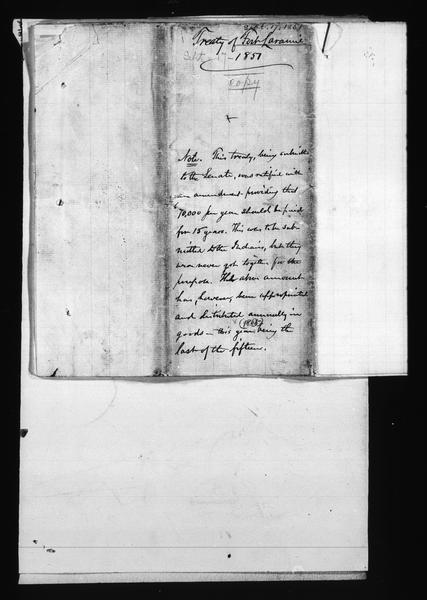 Sept. 17, 1851
Treaty of Fort Laramie
Sept. 17 - 1851
copy
Note. This treaty, being submitted
to the Senate, was ratified with
an amendment providing that
70,000 per year should be paid
for 15 years. This was to be sub
mitted to the Indians, but they
were never got together for the
purpose. The above amount
has, however, been appropriated
and distributed annually in
goods - this year being the
(1865)
last of the fifteen.